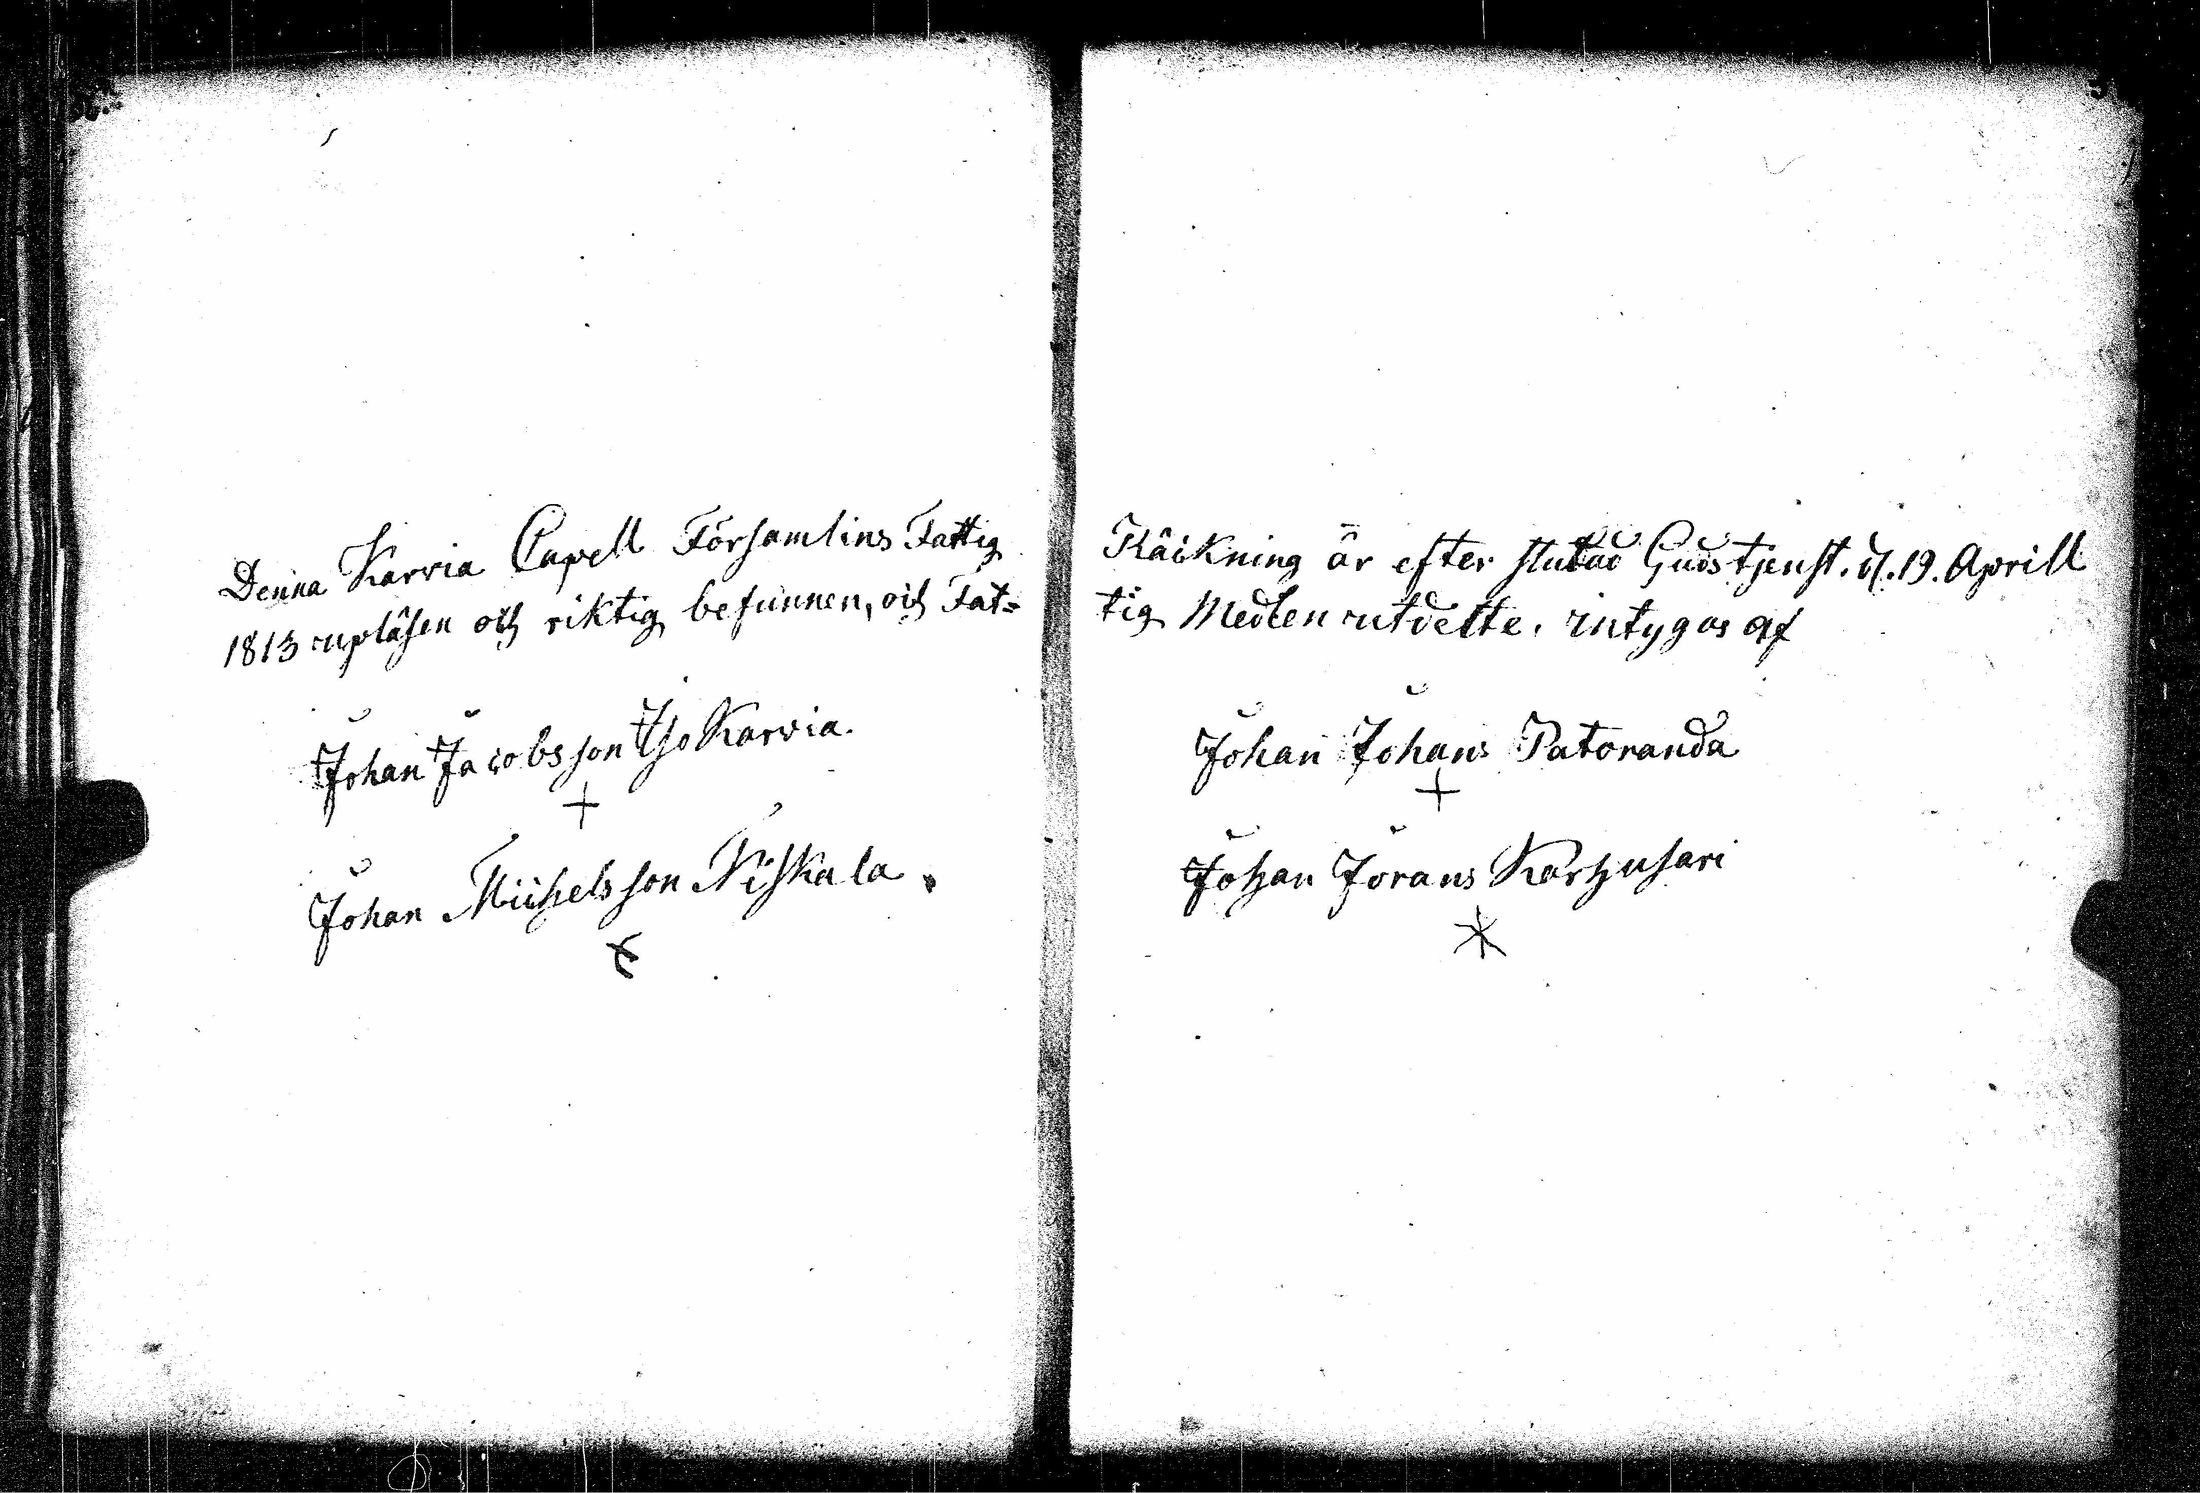 Denna Karvia Capell Församlins Fattig
Räkning är efter slutad Gudstjenst. d. 19. Aprill
1813 upläsen och riktig befunnen, och Fat=
tig Medlen utdelte, intygas af
Johan Jacobsson Iso Karvia.
Johan Johans Patoranda
Johan Michelsson Niskala.
Johan Jörans Karhusari